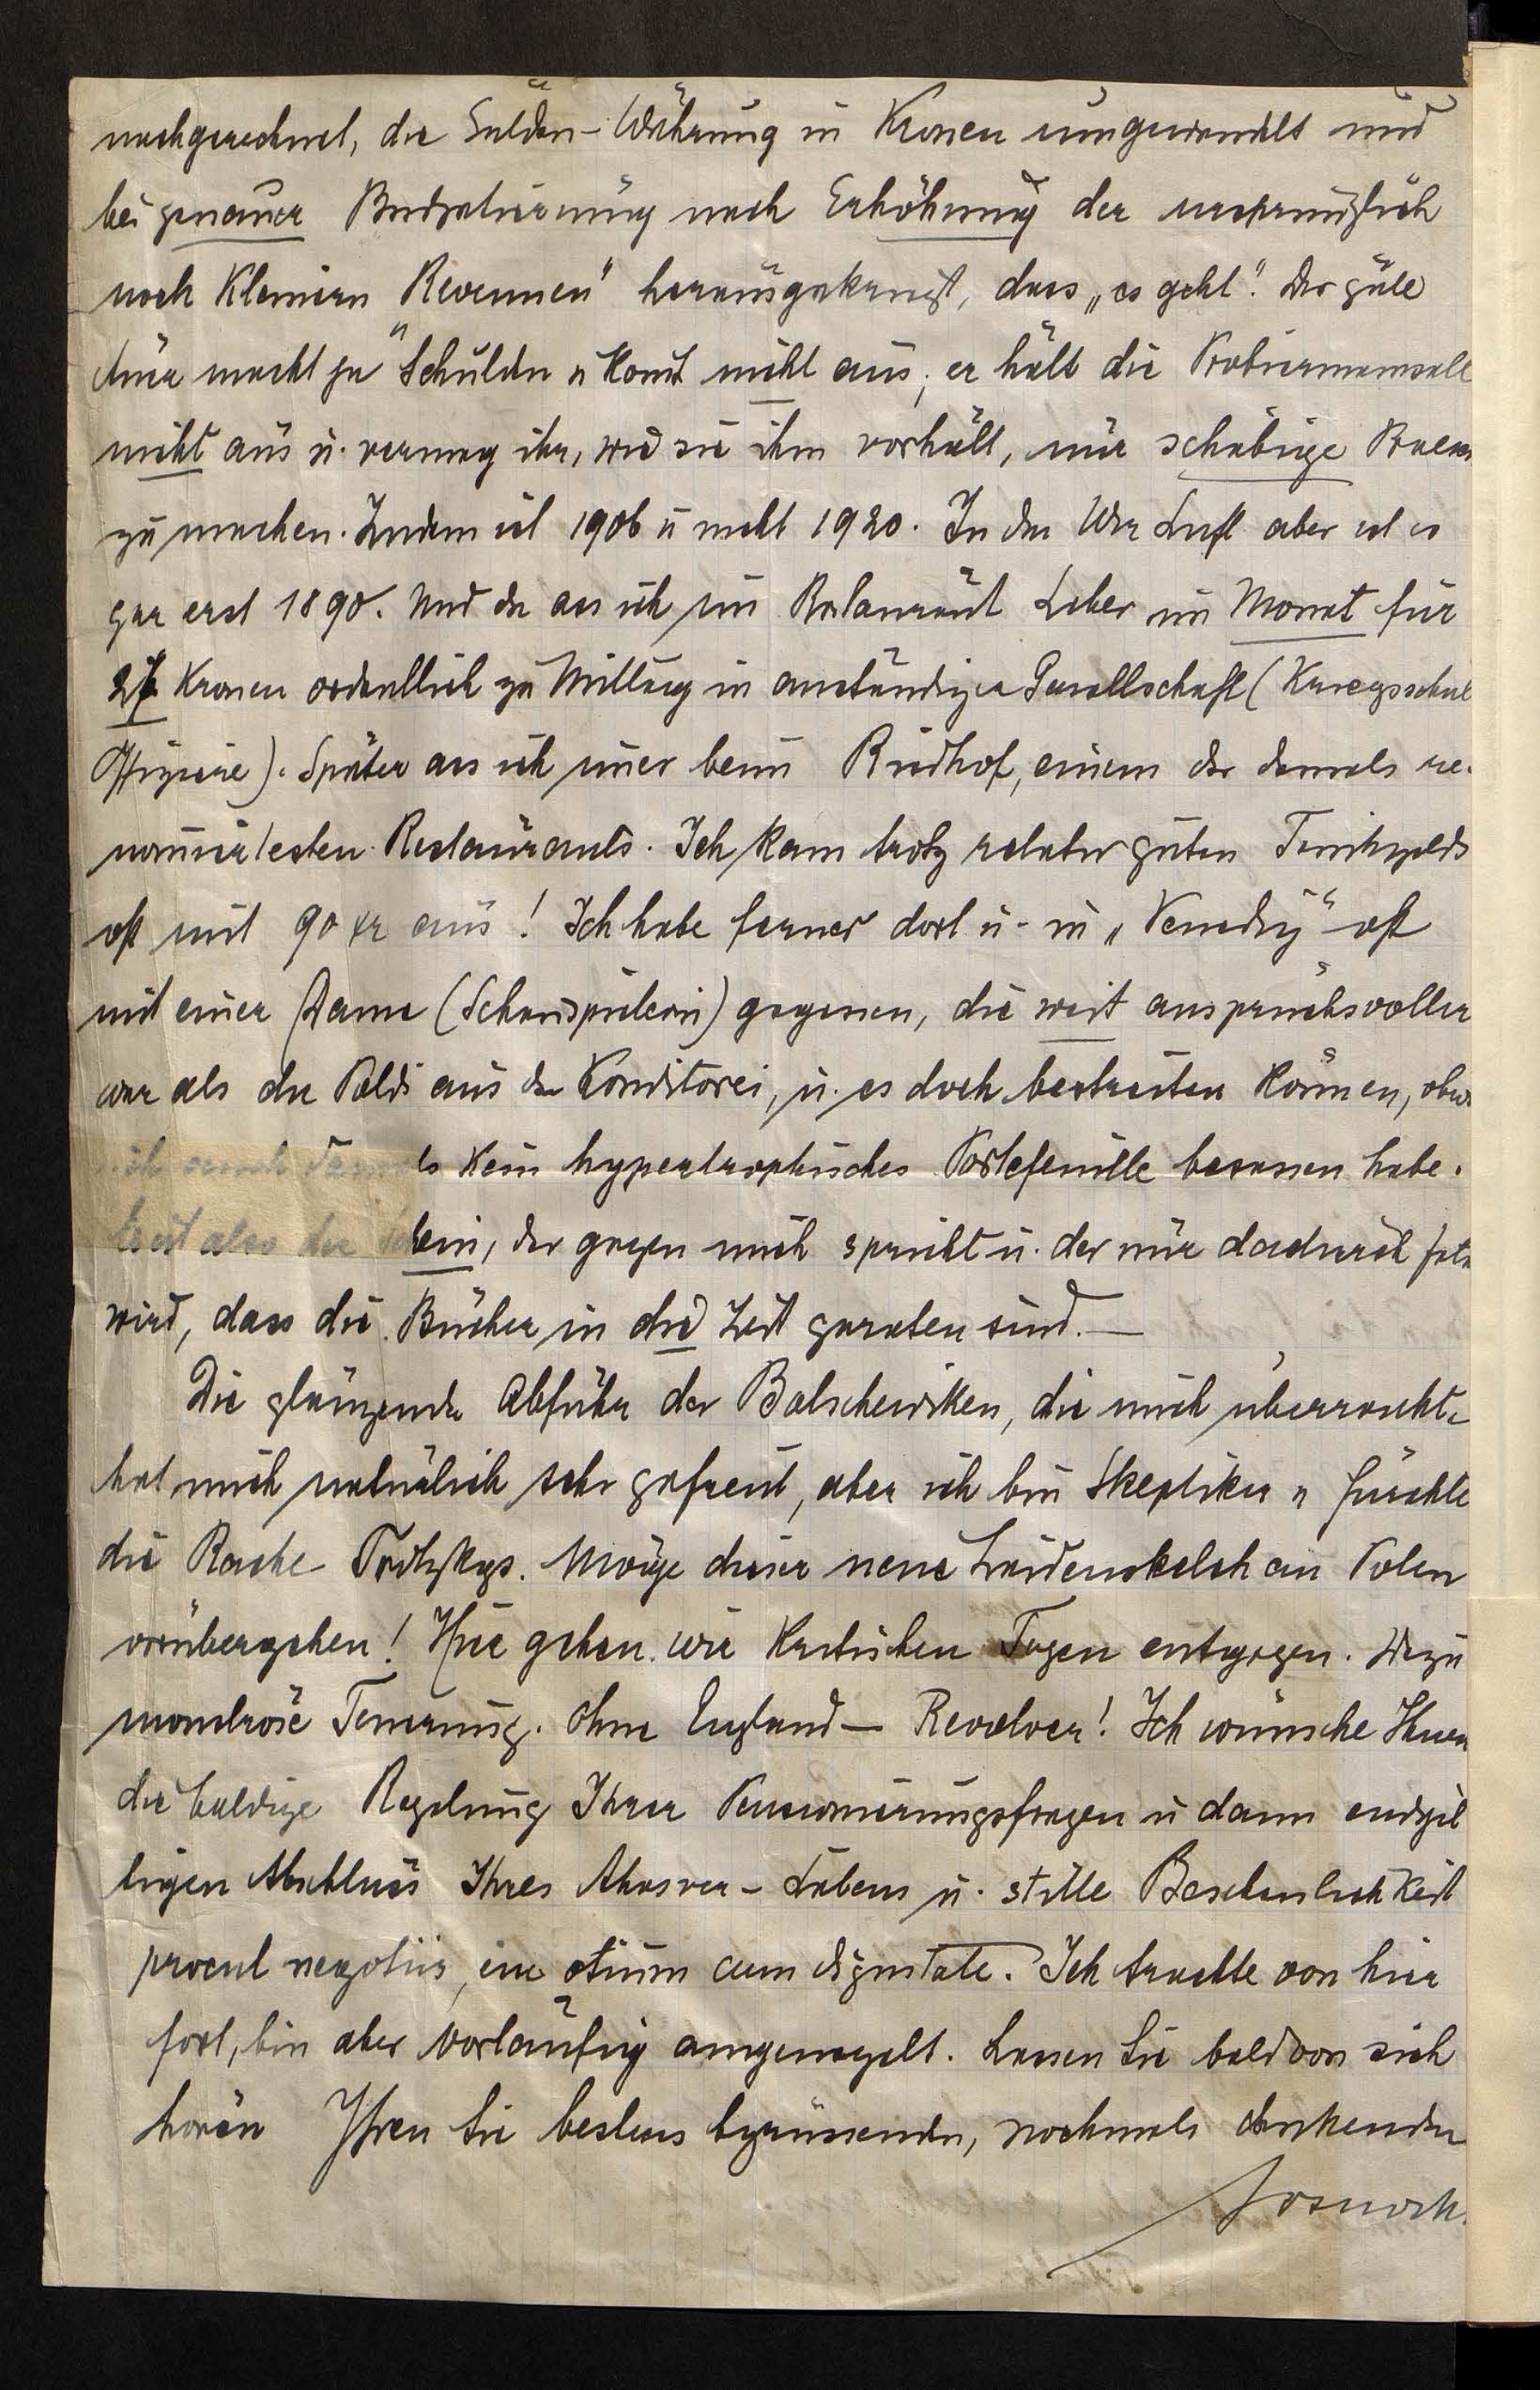 nachgerechnet, die Gulden-Währung in Kronen umgewandelt und
bei genauer Budgetierung nach Erhöhung der ursprünglich
noch kleinern Revenuen" herausgekriegt, dass „es geht". Der gute
macht ja Schulden u kommt nicht aus; er hält die Probiermamsell
nicht aus u. vermag ihr, wie sie ihm vorhält, nur schäbige
zu machen. Zudem ist 1906 u nicht 1920. In der Wr Luft aber ist es
gar erst 1890. Und da ass ich im Restaurant Leber im Monat für
27 Kronen ordentlich zu Mittag in anständiger Gesellschaft (Kriegsschul
Offiziere). Später ass ich immer beim Riedhof, einem der damals re-
nommiertesten Restaurants. Ich kam trotz relativ guten Trinkgelds
oft mit 90 xr aus! Ich habe ferner dort u. in „Venedig" oft
mit einer Dame (Schauspielerin) gegessen, die weit anspruchsvoller
war als die Poldi aus der Konditorei, u. es doch bestreiten können, obwo
ich auch damals kein hypertrophisches Portefeuille besessen habe.
Es ist also der Schein, der gegen mich spricht u. der nur dadurch
wird, dass die Bücher in die Zeit geraten sind. —
Die glänzende Abfuhr der Bolschewiken, die mich überraschte
hat mich natürlich sehr gefreut, aber ich bin Skeptiker u fürchte
die Rache Trotzkys. Möge dieser neue Leidenskelch an Polen
vorübergehen! Hier gehen wir kritischen Tagen entgegen. Dazu
monströse Teuerung. Ohne England — Revolver! Ich wünsche Ihnen
die baldige Regelung Ihrer Pensionierungsfragen u dann endgil
tigen Abschluss Ihres Ahasver-Lebens u. stille Beschaulichkeit
procul negotiis, in otium cum dignitate. Ich trachte von hier
fort, bin aber vorläufig angenagelt. Lassen Sie bald von sich
hören Ihren Sie bestens begrüssenden, nochmals dankenden
Sosnosk